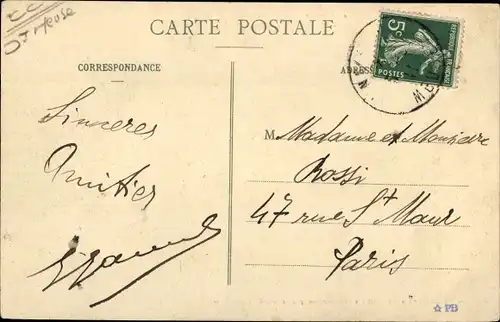 CARTE POSTALE
CORRESPONDANCE
ADRESSE
5c
POSTES
Sincères
Amitiés
M. Madame et Monsieur
Rossi
47 rue St Maur
Paris
☆ PB